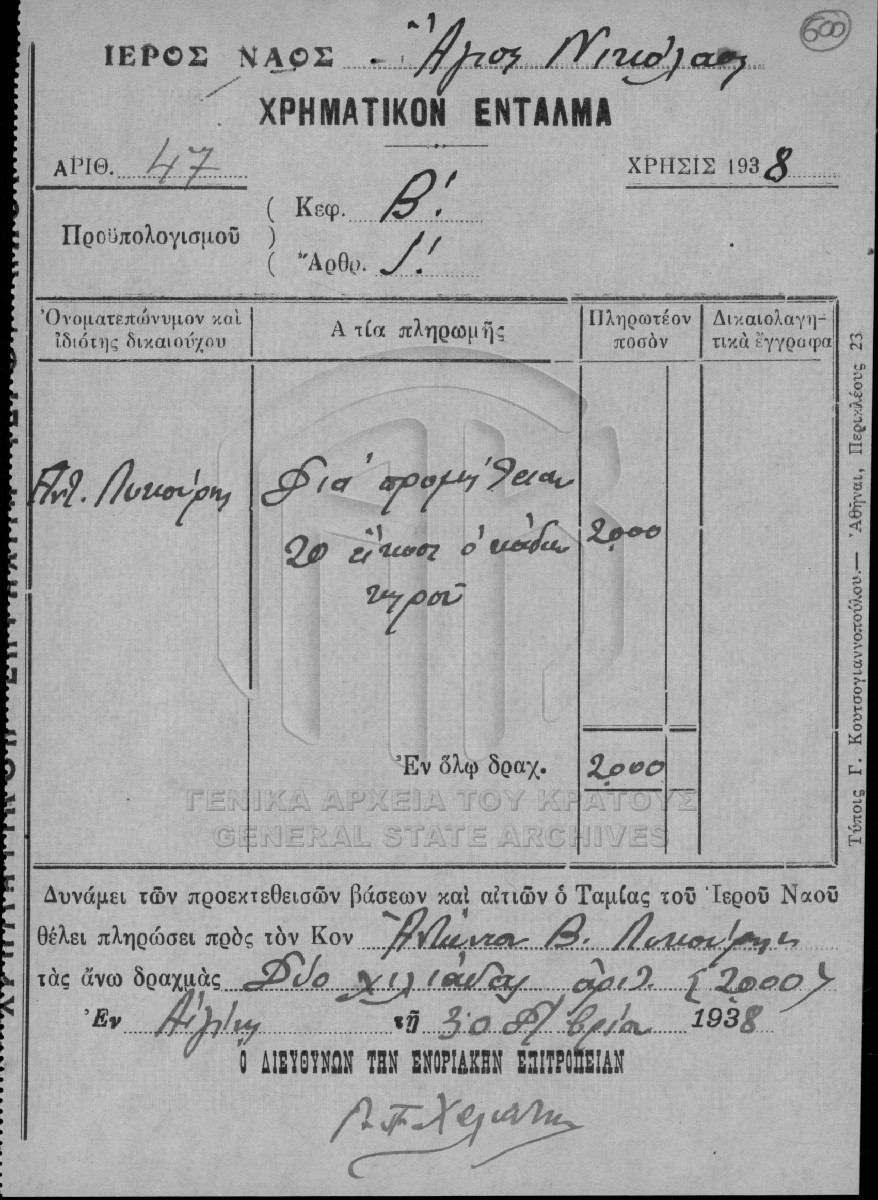 600
ΙΕΡΟΣ ΝΑΟΣ Ἅγιος Νικόλαος
ΧΡΗΜΑΤΙΚΟΝ ΕΝΤΑΛΜΑ
ΑΡΙΘ. 47 ΧΡΗΣΙΣ 1938
Προϋπολογισμοῦ
Κεφ. Β!
Ἄρθρ.
Ὀνοματεπώνυμον καὶ ἰδιότης δικαιούχου
Α τία πληρωμῆς
Πληρωτέον ποσὸν
Δικαιολαγητικὰ ἔγγραφα
Ἀντ. Λυκούρης Διά προμήθειαν 2000
20 εἴκοσι ὀκάδων
κηροῦ
Ἐν ὅλῳ δραχ. 2000
ΓΕΝΙΚΑ ΑΡΧΕΙΑ ΤΟΥ ΚΡΑΤΟΥΣ
GENERAL STATE ARCHIVES
Δυνάμει τῶν προεκτεθεισῶν βάσεων καὶ αἰτιῶν ὁ Ταμίας τοῦ Ἱεροῦ Ναοῦ
θέλει πληρώσει πρὸς τὸν Κον Ἀντώνιον Β. Λυκούρην
τὰς ἄνω δραχμὰς Δύο χιλιάδας ἀριθ. (2000)
Ἐν Αἰγίνῃ τῇ 30 1938
Ὁ ΔΙΕΥΘΥΝΩΝ ΤΗΝ ΕΝΟΡΙΑΚΗΝ ΕΠΙΤΡΟΠΕΙΑΝ
Τύποις Γ. Κουτσογιαννοπούλου.— Ἀθῆναι, Περικλέους 23